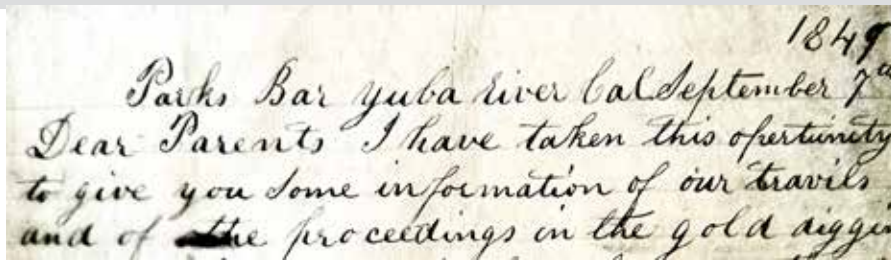 1849
Parks Bar Yuba River Cal September 7th
Dear Parents I have taken this opertunity
to give you some information of our travils
and of the proceedings in the gold diggin